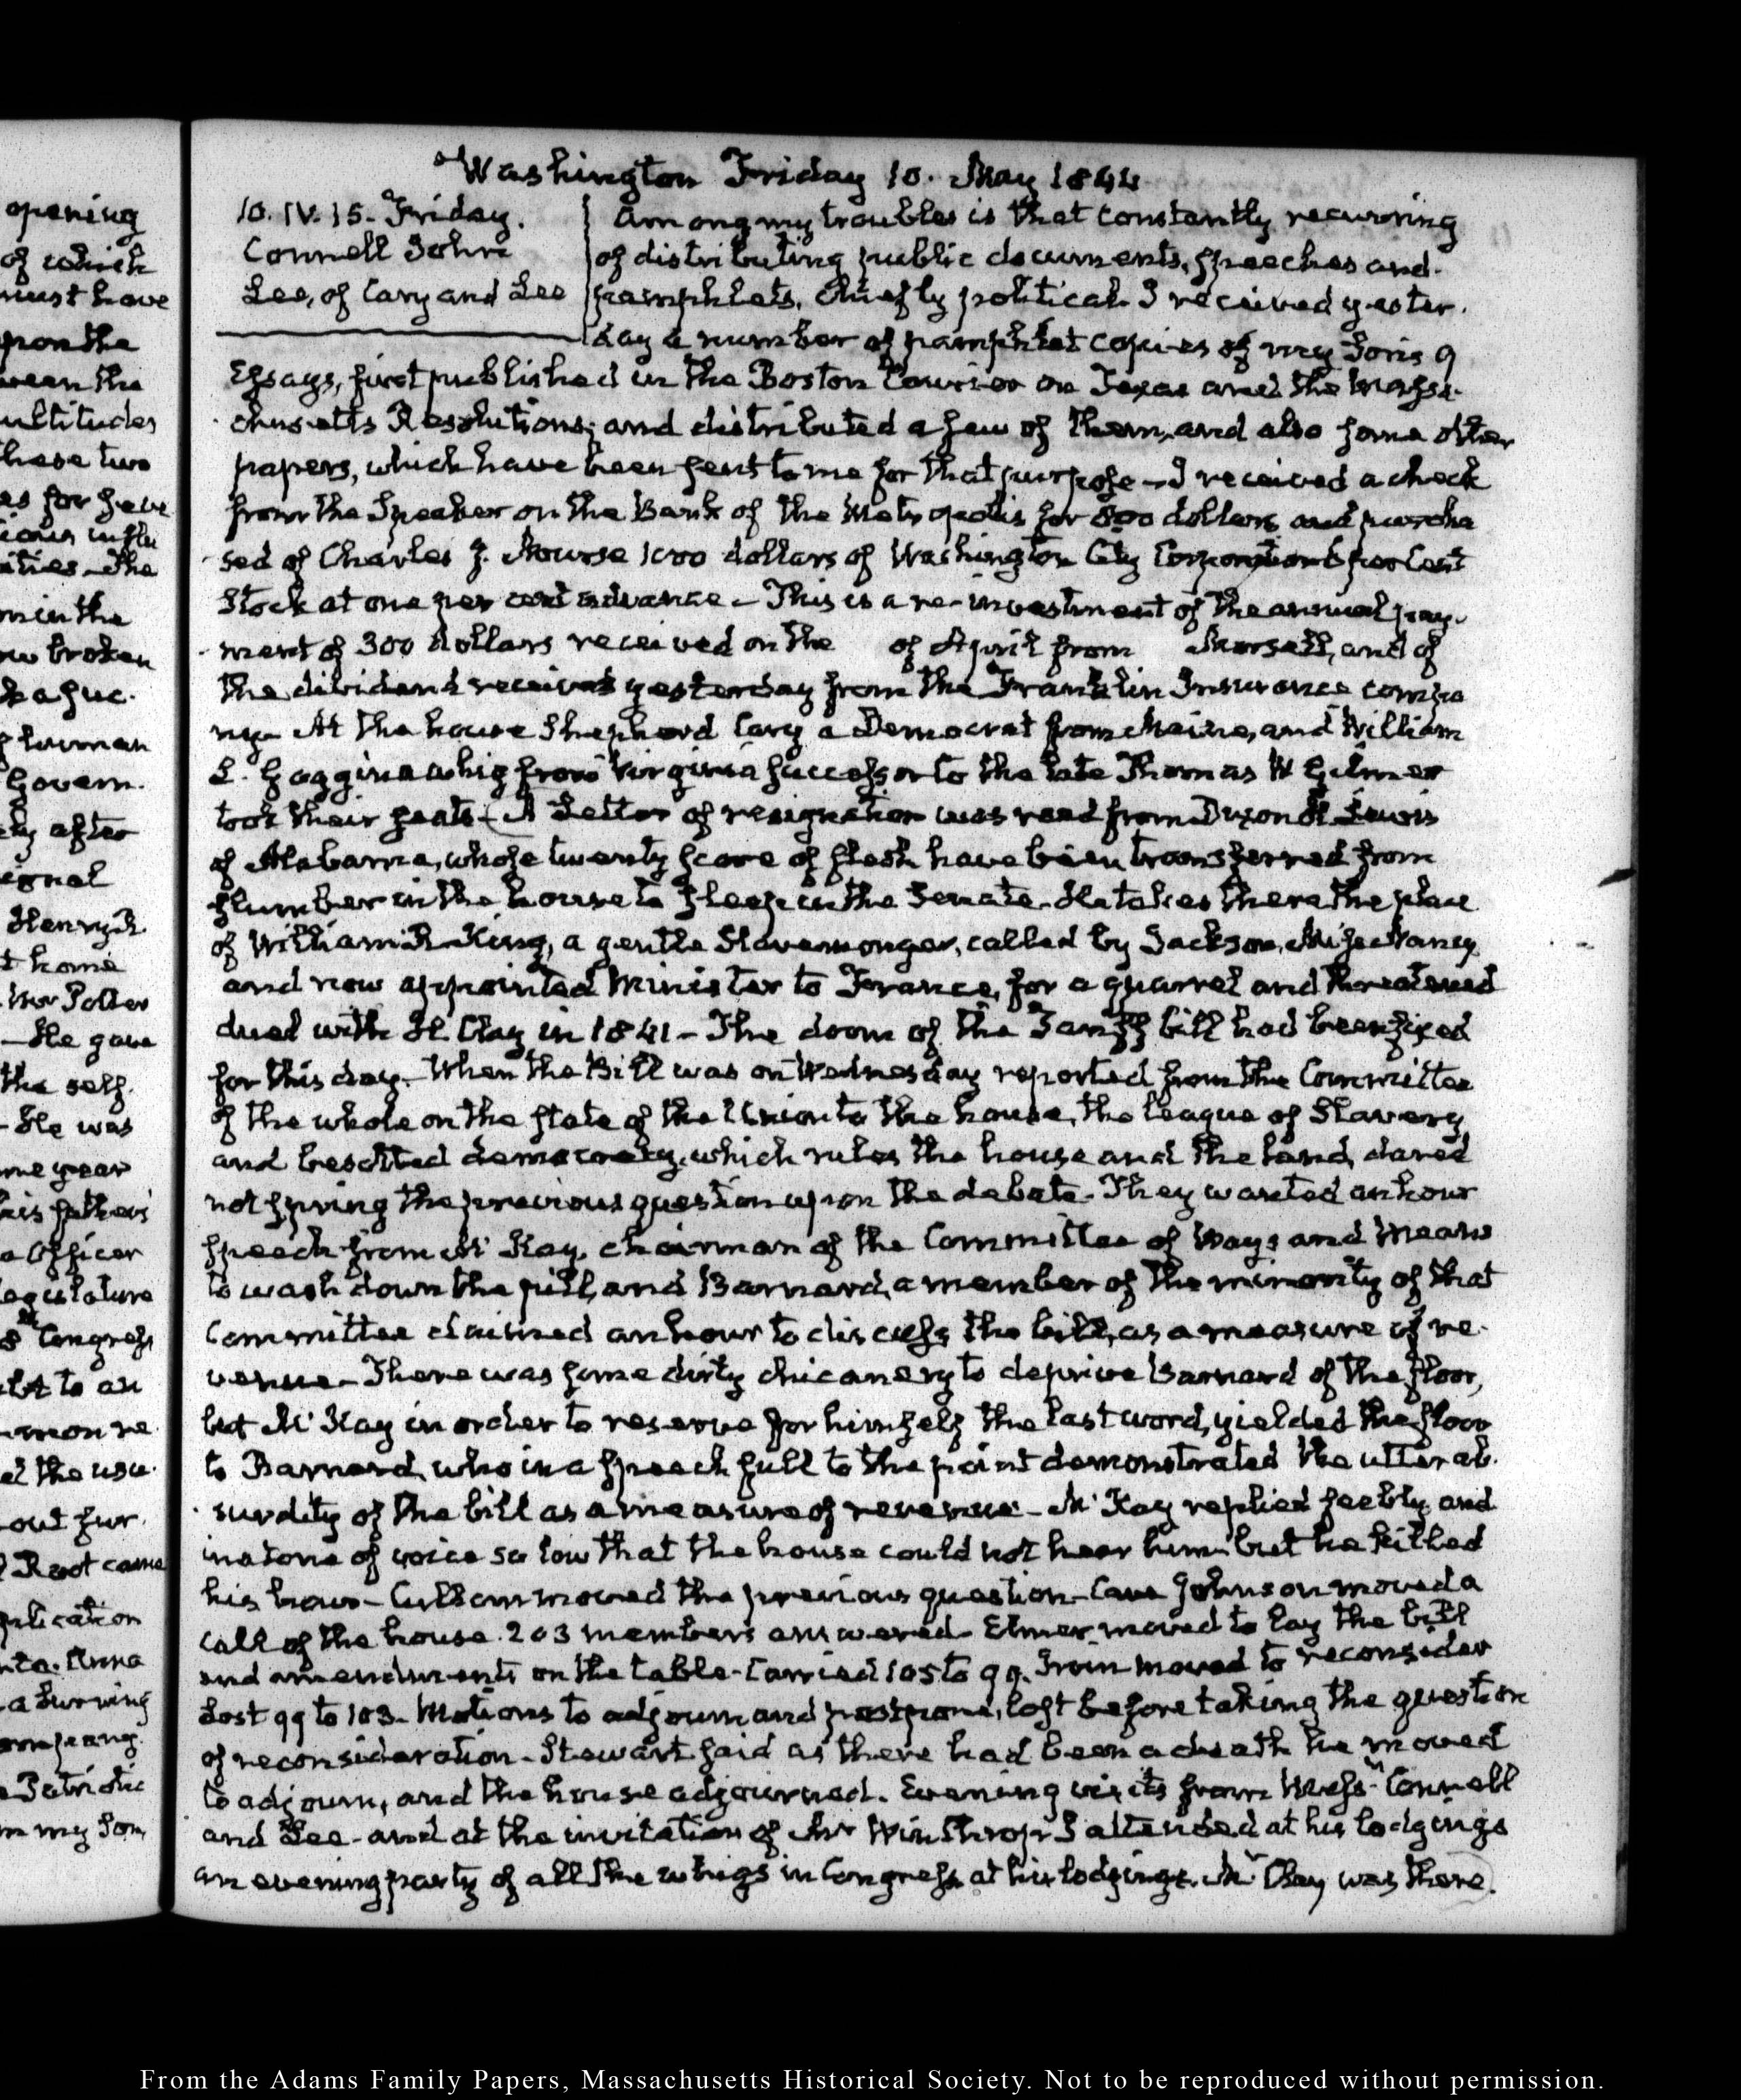 opening
of which
must have
upon the
ween the
ultitudes
these two
as for
ities - The
m in the
w broken
k a suc-
human
Govern-
ly after
ignal
Henry R
t home
Mr Potter
- He gave
the self
- He was
me year
his father's
a Officer
legislature
8th Congress
to an
mon re
el the usu-
out fur
Root came
plication
nta. Anna
a
Patriotic
m my Son,
Washington Friday 10. May 1844
10. IV. 15. Friday.
Connell John
Lee, of Cary and Lee
Among my troubles is that constantly recurring
of distributing public documents, speeches and
pamphlets, chiefly political. I received yester-
day a number of pamphlet copies of my Son's 9
Essays, first published in the Boston Courier on Texas and the Massa-
chusetts Resolutions; and distributed a few of them, and also some other
papers, which have been sent to me for that purpose - I received a check
from the Speaker on the Bank of the Metropolis for 800 dollars and purcha
sed of Charles J. Nourse 1000 dollars of Washington City Corporation 6 per Cent
Stock at one per cent advance - This is a re-investment of the annual pay-
ment of 300 dollars received on the of April from and of
the dividend received yesterday from the Franklin Insurance compa
ny - At the house Shepherd Cary a Democrat from Maine, and William
L. Goggin a whig from Virginia successor to the late Thomas W Gilmer
took their seats - A Letter of resignation was read from Dixon H. Lewis
of Alabama, whose twenty score of flesh have been transferred from
slumber in the house to sleep in the Senate. He takes there the place
of William R. King, a gentle Slavemonger, called by Jackson, Miss Nancy
and now appointed Minister to France, for a quarrel and threatened
duel with H. Clay in 1841 - The doom of the Tariff bill had been fixed
for this day. When the Bill was on Wednesday reported from the Committee
of the whole on the state of the Union to the house, the league of Slavery
and besotted democracy, which rules the house and the land, dared
not spring the previous question upon the debate. They wanted an hour
speech from Mc Kay, chairman of the Committee of Ways and Means
to wash down the pill, and Barnard, a member of the minority of that
Committee claimed an hour to discuss the bill, as a measure of re-
venue - There was some dirty chicanery to deprive Barnard of the floor,
but Mc Kay in order to reserve for himself the last word, yielded the floor
to Barnard, who in a speech full to the point demonstrated the utter ab-
surdity of the bill as a measure of revenue - Mc Kay replied feebly and
in a tone of voice so low that the house could not hear him but he killed
his hour - Cullom moved the previous question - Cave Johnson moved a
call of the house. 203 members answered - Elmer moved to lay the bill
and amendments on the table - Carried 105 to 99. Irvin moved to reconsider
Lost 99 to 103 - Motions to adjourn and postpone, lost before taking the question
of reconsideration - Stewart said as there had been a death he moved
to adjourn, and the house adjourned. Evening visits from Messrs Connell
and Lee - and at the invitation of Mr Winthrop I attended at his lodgings
an evening party of all the whigs in Congress at his lodgings. Mr Clay was there.
From the Adams Family Papers, Massachusetts Historical Society. Not to be reproduced without permission.